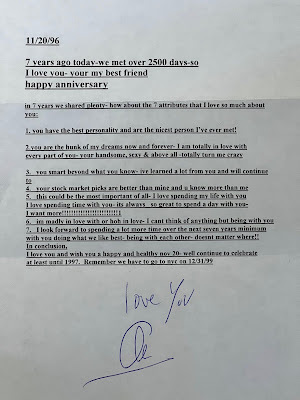 11/20/96
7 years ago today-we met over 2500 days-so
I love you- your my best friend
happy anniversary
in 7 years we shared plenty- how about the 7 attributes that I love so much about
you:
1. you have the best personality and are the nicest person I've ever met!
2.you are the hunk of my dreams now and forever- I am totally in love with
every part of you- your handsome, sexy & above all -totally turn me crazy
3. you smart beyond what you know- ive learned a lot from you and will continue
to
4. your stock market picks are better than mine and u know more than me
5. this could be the most important of all- I love spending my life with you
I love spending time with you- its always so great to spend a day with you-
I want more!!!!!!!!!!!!!!!!!!!!!!!!!
6. im madly in love with or hoh in love- I cant think of anything but being with you
7. I look forward to spending a lot more time over the next seven years minimum
with you doing what we like best- being with each other- doesnt matter where!!
In conclusion,
I love you and wish you a happy and healthy nov 20- well continue to celebrate
at least until 1997. Remember we have to go to nyc on 12/31/99
love You